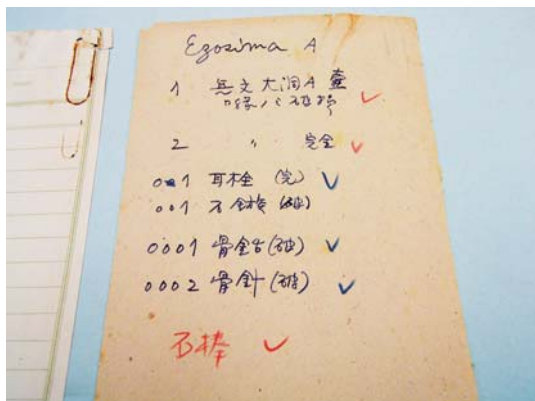 Egozima A
1 無文大洞A壷
口縁八破損 ✓
2 〃 完全 ✓
001 耳栓 (完) ✓
001 石鏃 (破)
0001 骨銛 (破) ✓
0002 骨針 (破) ✓
石棒 ✓